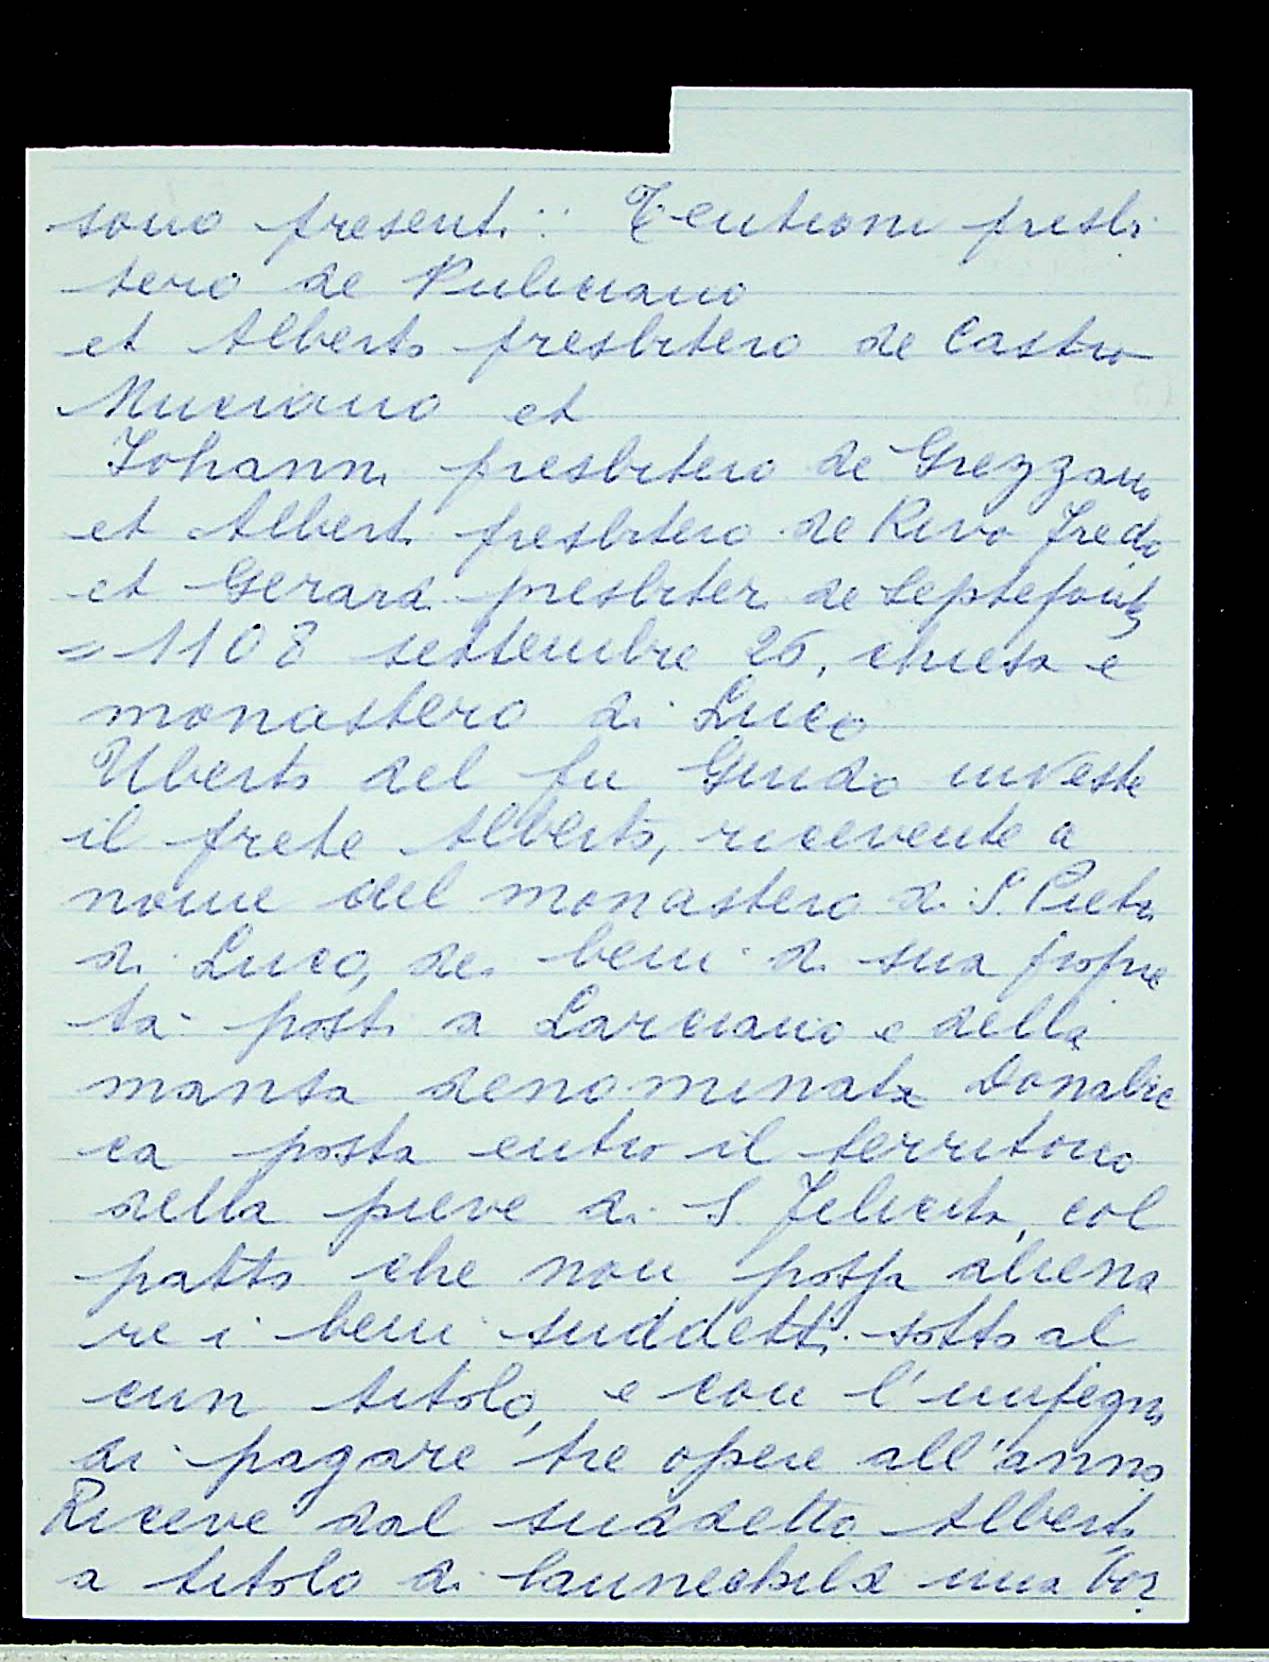 sono presenti: Teutioni presbi
tero de Puliciano
et Alberto presbitero de Castro
Muciano et
Johanni presbitero de Grezzano
et Alberti presbitero de Rivo Fredo
et Gerard presbiter de Septefonti
= 1108 settembre 26, chiesa e
monastero di Luco
Uberto del fu Guido investe
il prete Alberto, ricevente a
nome del monastero di S. Pietro
di Luco, dei beni di sua proprie
tà posti a Larciano e della
mansa denominata Donabie
ca posta entro il territorio
della pieve di S. Felicita, col
patto che non possa aliena
re i beni suddetti sotto al
cun titolo, e con l'impegno
di pagare tre opere all'anno
Riceve dal suddetto Alberto
a titolo di launechild una